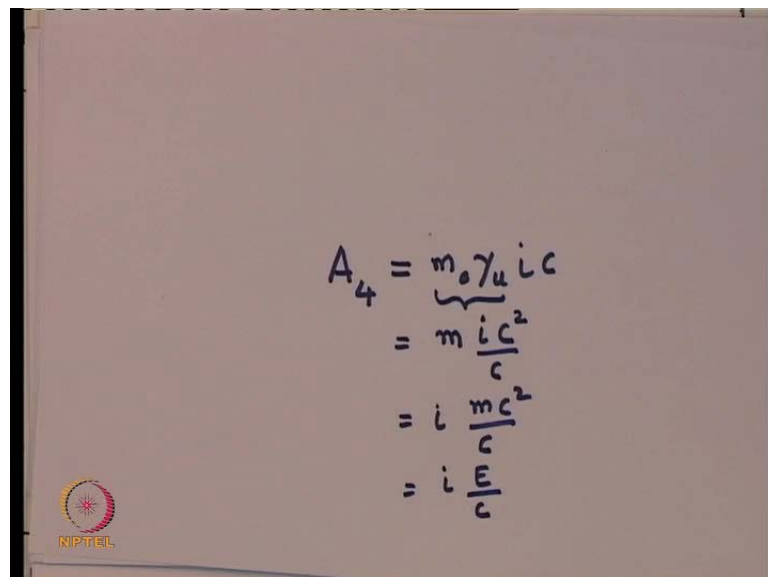 A₄ = m₀ γᵤ i c
= m i c² / c
= i mc² / c
= i E / c
NPTEL